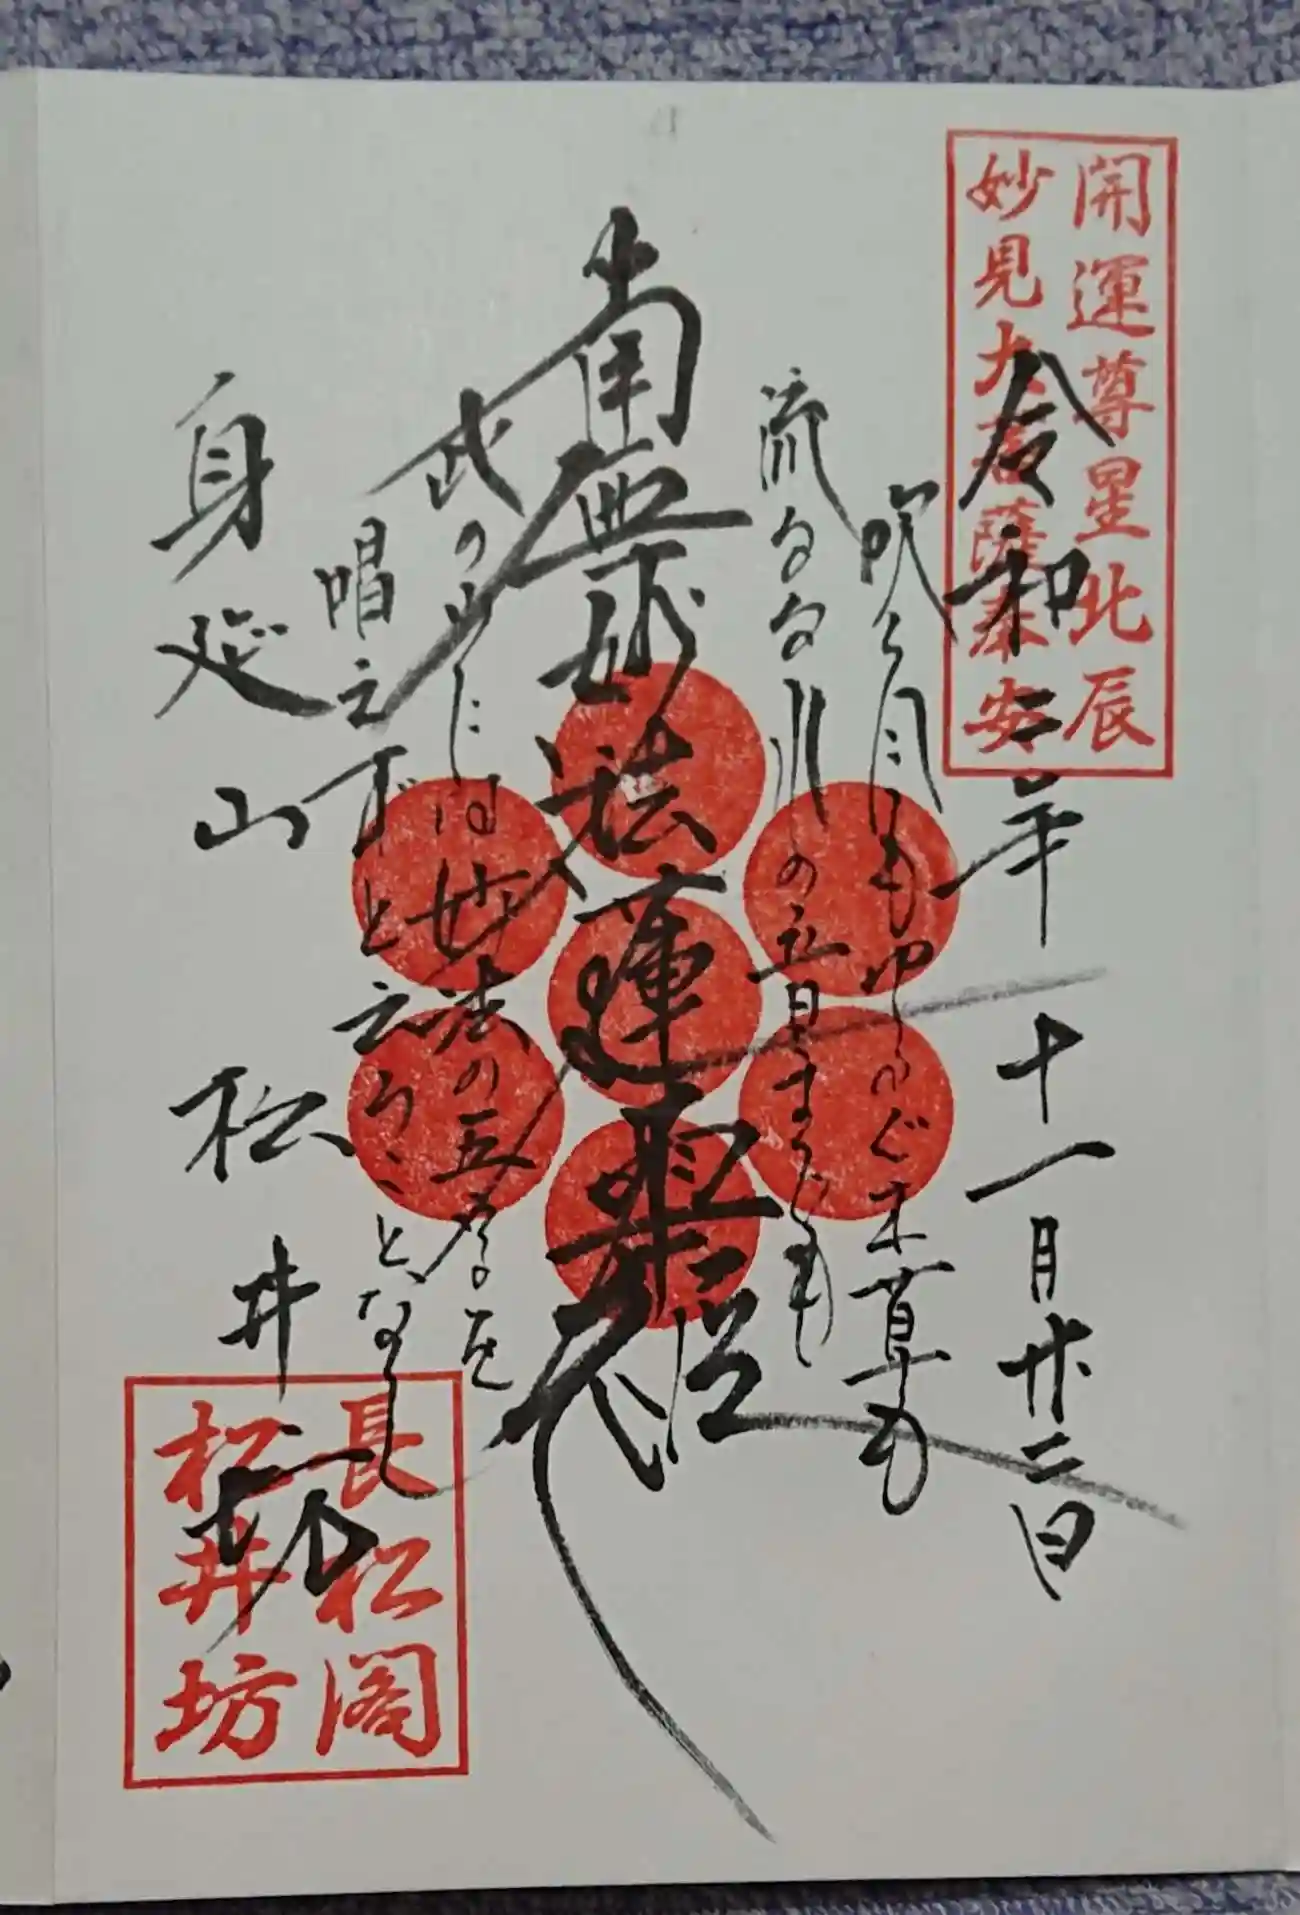 開運尊星北辰
妙見大菩薩奉安
令和二年十一月廿二日
吹く風もゆるぐ木草も
流るる川の立日まても
南無妙法蓮華経
此の山には妙法の五字を
唱えずと云うことなし
身延山 松井坊
長松閣
松井坊